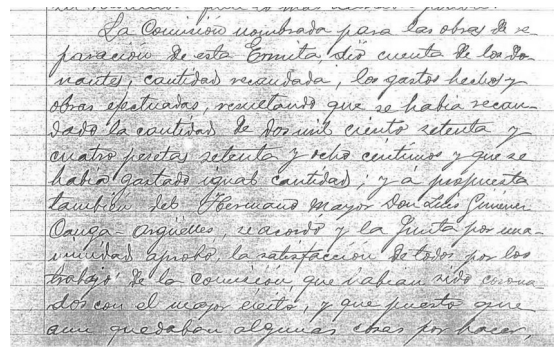 La Comisión nombrada para las obras de re
paración de esta Ermita dió cuenta de los do
nantes, cantidad recaudada, los gastos hechos y
obras efectuadas, resultando que se habia recau
dado la cantidad de dos mil ciento setenta y
cuatro pesetas setenta y ocho centimos y que se
habia gastado igual cantidad; y á propuesta
tambien del Hermano Mayor Don Luis
Canga-Argüelles, se acordó y la Junta por una-
nimidad aprobó, la satisfacción de todos por los
trabajos de la Comisión, que habian sido corona
dos con el mayor éxito, y que puesto que
aun quedaban algunas cosas por hacer,